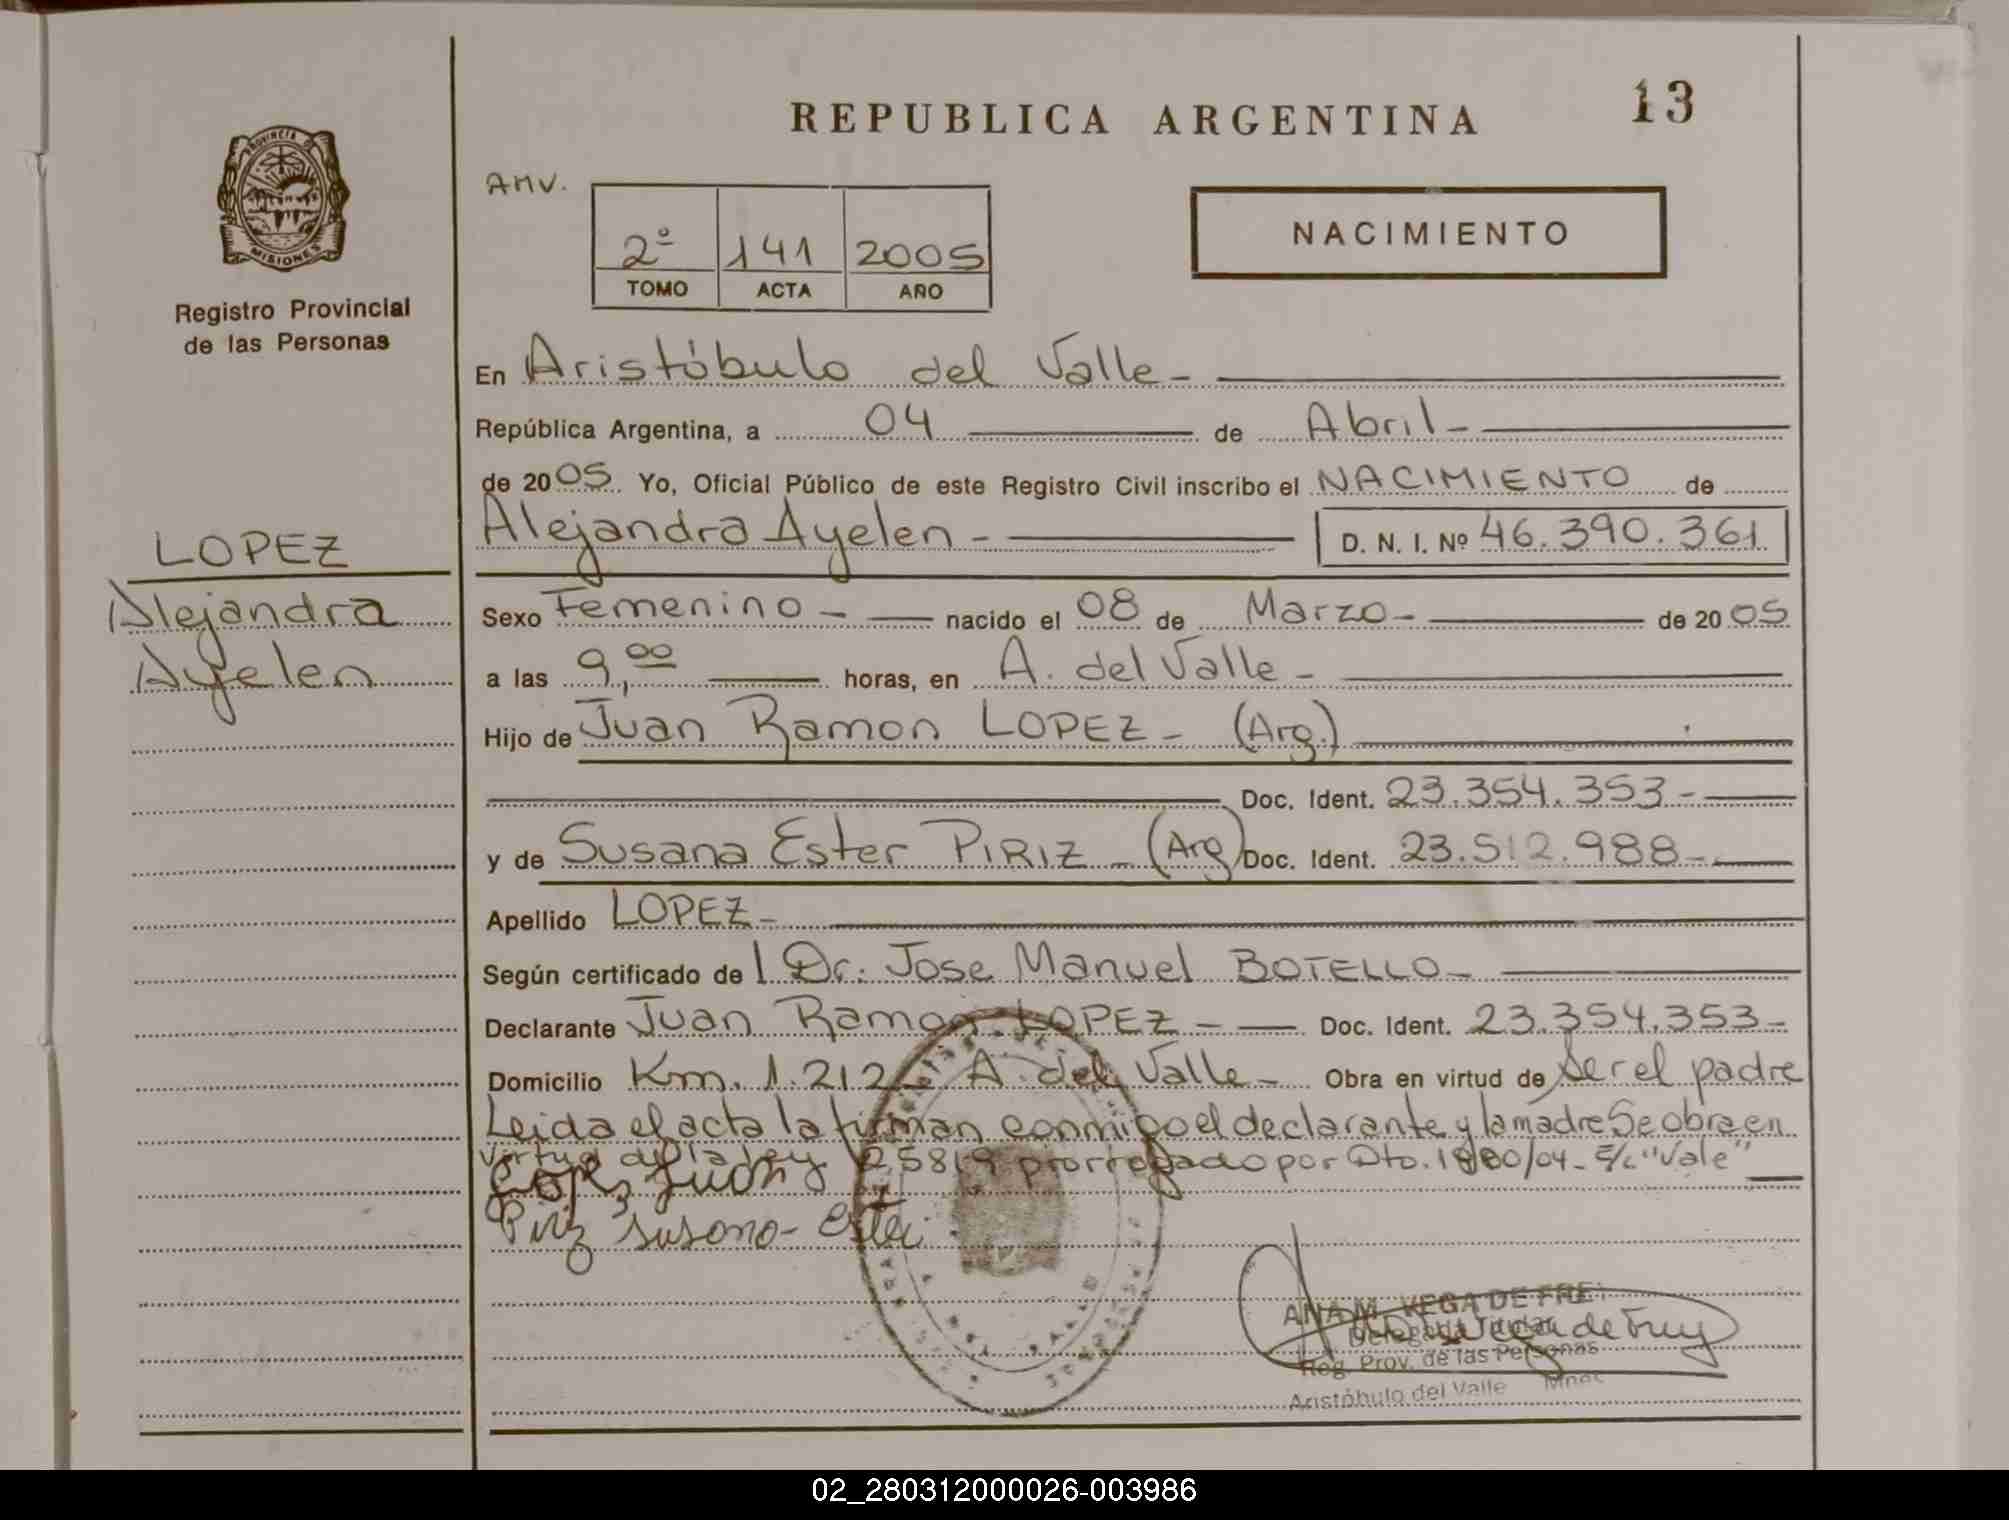 REPUBLICA ARGENTINA
13
PROVINCIA DE
MISIONES
Registro Provincial
de las Personas
AMV.
2º 141 2005
TOMO ACTA AÑO
NACIMIENTO
En Aristóbulo del Valle-
República Argentina, a 04 de Abril-
de 2005. Yo, Oficial Público de este Registro Civil inscribo el NACIMIENTO de
Alejandra Ayelen- D. N. I. Nº 46.390.361
LOPEZ
Alejandra
Ayelen
Sexo Femenino- nacido el 08 de Marzo- de 2005
a las 9,00 horas, en A. del Valle-
Hijo de Juan Ramon LOPEZ- (Arg.)
Doc. Ident. 23.354.353-
y de Susana Ester PIRIZ- (Arg) Doc. Ident. 23.512.988-
Apellido LOPEZ-
Según certificado de l Dr. Jose Manuel BOTELLO-
Declarante Juan Ramon LOPEZ- Doc. Ident. 23.354.353-
Domicilio Km. 1.212- A. del Valle- Obra en virtud de Ser el padre
Leida el acta la firman conmigo el declarante y la madre Se obra en
virtud de la ley 25819 prorrogado por Dto. 1980/04- E/L "Vale"
Lopez Juan
Piriz Susana Ester
ANA M. VEGA DE FREY
Delegada Titular
Reg. Prov. de las Personas
Aristóbulo del Valle Mnes
02_280312000026-003986